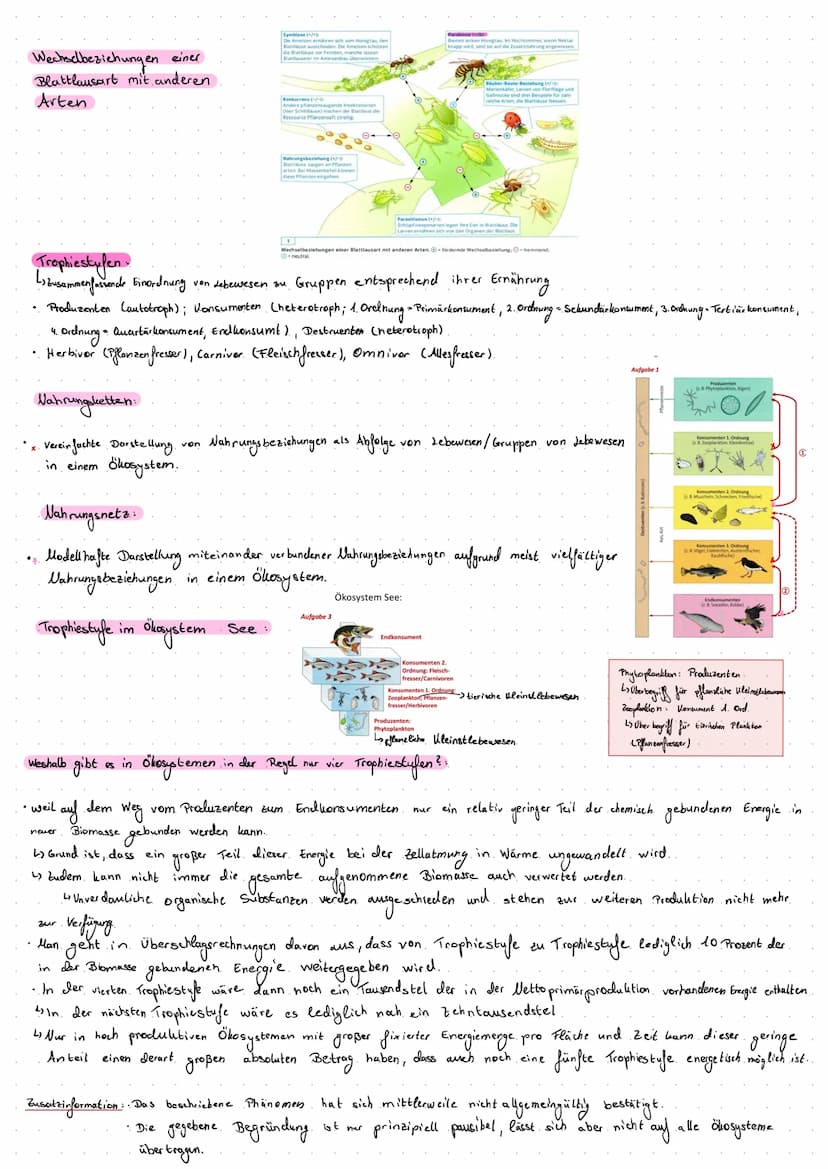 Wechselbeziehungen einer
Blattlausart mit anderen
Arten
Symbiose (+/+):
Die Ameisen ernähren sich vom Honigtau, den
Blattläuse ausscheiden. Die Ameisen schützen
die Blattläuse vor Feinden, manche lassen
Blattlauseier im Ameisenbau überwintern.
Bienen lecken Honigtau. Im Hochsommer, wenn Nektar
knapp wird, sind sie auf die Zusatznahrung angewiesen.
Räuber-Beute-Beziehung (+/-):
Marienkäfer, Larven von Florfliege und
Gallmücke sind drei Beispiele für zahl-
reiche Arten, die Blattläuse fressen.
Konkurrenz (-/-):
Andere pflanzensaugende Insektenarten
(hier Schildläuse) machen der Blattlaus die
Ressource Pflanzensaft streitig.
Nahrungsbeziehung (+/-):
Blattläuse saugen an Pflanzen
arten. Bei Massenbefall können
diese Pflanzen eingehen.
Parasitismus (+/-):
Schlupfwespenarten legen ihre Eier in Blattläuse. Die
Larven ernähren sich von den Organen der Blattlaus.
1
Wechselbeziehungen einer Blattlausart mit anderen Arten. + = fördernde Wechselbeziehung; - = hemmend,
= neutral.
Trophiestufen:
↳ zusammenfassende Einordnung von Lebewesen zu Gruppen entsprechend ihrer Ernährung
• Produzenten (autotroph); Konsumenten (heterotroph; 1. Ordnung = Primärkonsument, 2. Ordnung = Sekundärkonsument, 3. Ordnung = Tertiärkonsument,
4. Ordnung = Quartärkonsument, Endkonsumt), Destruenten (heterotroph)
• Herbivor (Pflanzenfresser), Carnivor (Fleischfresser), Omnivor (Allesfresser)
Nahrungsketten:
• Vereinfachte Darstellung von Nahrungsbeziehungen als Abfolge von Lebewesen/Gruppen von Lebewesen
in einem Ökosystem.
Nahrungsnetz:
• Modellhafte Darstellung miteinander verbundener Nahrungsbeziehungen aufgrund meist vielfältiger
Nahrungsbeziehungen in einem Ökosystem.
Aufgabe 1
Produzenten
(z. B. Phytoplankton, Algen)
Konsumenten 1. Ordnung
(z. B. Zooplankton, Kleinkrebse)
Konsumenten 2. Ordnung
(z. B. Muscheln, Schnecken, Friedfische)
Konsumenten 3. Ordnung
Endkonsumenten
①
②
Ökosystem See:
Trophiestufe im Ökosystem See:
Aufgabe 3
Endkonsument
Konsumenten 2.
Ordnung: Fleisch-
fresser/Carnivoren
Konsumenten 1. Ordnung:
Zooplankton, Pflanzen-
fresser/Herbivoren
→ tierische Kleinstlebewesen
Produzenten:
Phytoplankton
↳ pflanzliche Kleinstlebewesen
Phytoplankton: Produzenten
↳ Überbegriff für pflanzliche Kleinstlebewesen
Zooplankton: Konsument 1. Ord.
↳ Überbegriff für tierischen Plankton
(Pflanzenfresser)
Weshalb gibt es in Ökosystemen in der Regel nur vier Trophiestufen?:
• weil auf dem Weg vom Produzenten zum Endkonsumenten nur ein relativ geringer Teil der chemisch gebundenen Energie in
neuer Biomasse gebunden werden kann.
↳ Grund ist, dass ein großer Teil dieser Energie bei der Zellatmung in Wärme umgewandelt wird.
↳ Zudem kann nicht immer die gesamte aufgenommene Biomasse auch verwertet werden.
↳ Unverdauliche organische Substanzen werden ausgeschieden und stehen zur weiteren Produktion nicht mehr
zur Verfügung.
• Man geht in Überschlagsrechnungen davon aus, dass von Trophiestufe zu Trophiestufe lediglich 10 Prozent der
in der Biomasse gebundenen Energie weitergegeben wird.
• In der vierten Trophiestufe wäre dann noch ein Tausendstel der in der Nettoprimärproduktion vorhandenen Energie enthalten
↳ In der nächsten Trophiestufe wäre es lediglich noch ein Zehntausendstel
↳ Nur in hoch produktiven Ökosystemen mit großer fixierter Energiemenge pro Fläche und Zeit kann dieser geringe
Anteil einen derart großen absoluten Betrag haben, dass auch noch eine fünfte Trophiestufe energetisch möglich ist.
Zusatzinformation: • Das beschriebene Phänomen hat sich mittlerweile nicht allgemeingültig bestätigt.
• Die gegebene Begründung ist nur prinzipiell pausibel, lässt sich aber nicht auf alle Ökosysteme
übertragen.